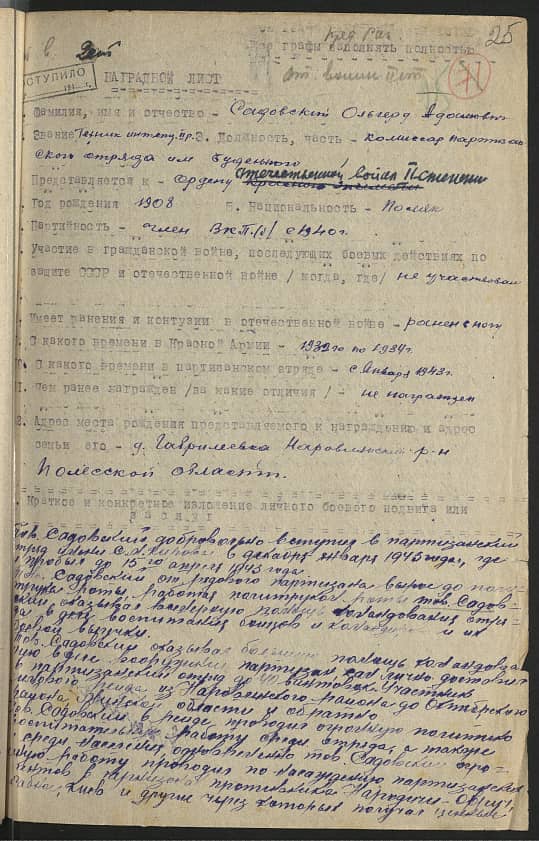 25
Все графы заполнять полностью
ПОСТУПИЛО
НАГРАДНОЙ ЛИСТ
71
Фамилия, имя и отчество - Садовский Ольгерд Адамович
Звание Техник интенд. 2р. 3. Должность, часть - комиссар партизан
ского отряда им Буденного
Отечественной войны II степени
Представляется к - Ордену
Год рождения 1908 5. Национальность - Поляк
Партийность - член ВКП/б/ с 1940 г.
Участие в гражданской войне, последующих боевых действиях по
защите СССР и отечественной войне /когда, где/ не участвовал
Имеет ранения и контузии в отечественной войне - ранен в ногу
С какого времени в Красной Армии - по 1934г.
С какого времени в партизанском отряде - с января 1943г.
Чем ранее награжден /за какие отличия/ - не награжден
Адрес места рождения представляемого к награждению и адрес
семьи его - д. Гаврилевка Наровлянский р-н
Полесской области.
Краткое и конкретное изложение личного боевого подвига или
заслуг
Тов. Садовский добровольно вступил в партизанский
отряд имени С.М. Кирова в января 1943 года, где
и пробыл до 15го апреля 1943 года.
Тов. Садовский от рядового партизана вырос до поли-
трука роты, работая политруком роты тов. Садов-
ский оказывал помощь командованию отря-
да в деле воспитания бойцов и и их
боевой выучки.
Тов. Садовский оказывал большую помощь командова-
нию в деле вооружения партизан, лично доставил
в партизанский отряд до 40 винтовок. Участник
рейда из Наровлянского района до Октябрьского
района области и обратно.
Тов. Садовский в рейде проводил огромную политико
воспитательную работу среди отряда, а также
среди населения, одновременно тов. Садовский огро-
мную работу проводил по насаждению партизанских
агентов в гарнизонах противника Народичи - Овруч,
Киев и другие через которых получал ценные